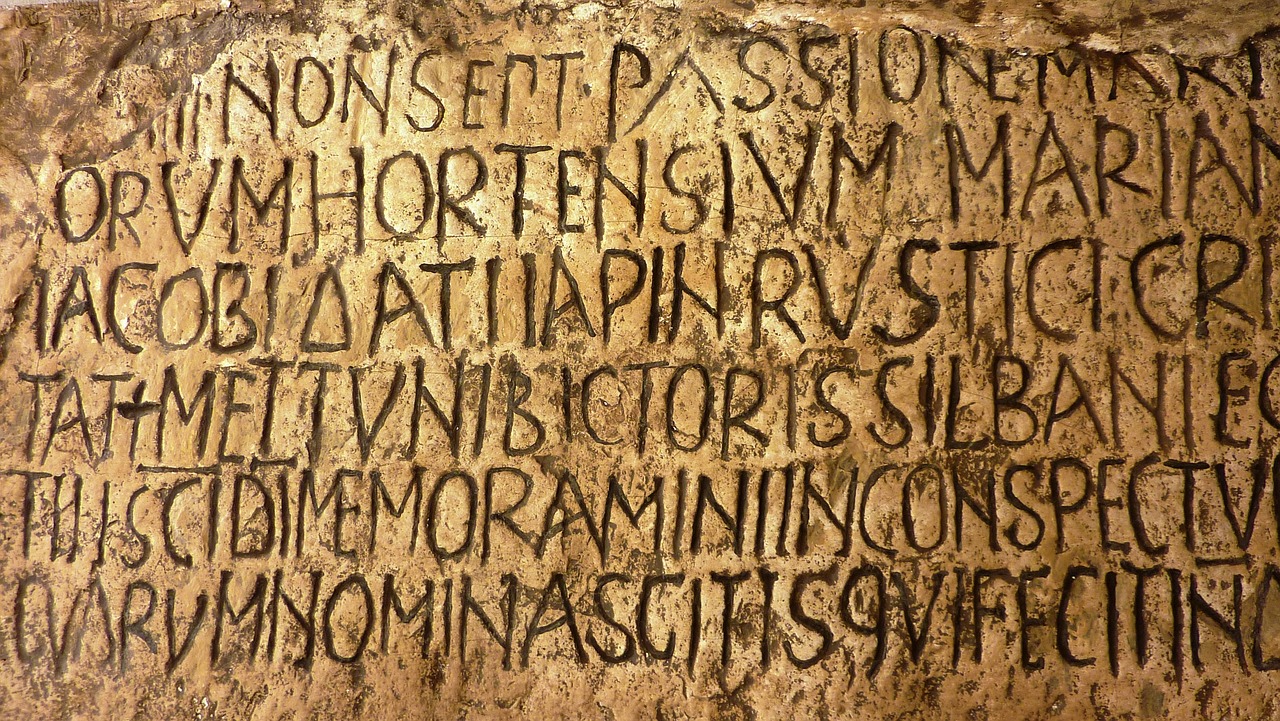 III NONSEPT PASSIONE MARTI
ORVMHORTENSIVM MARIAN
IACOBI DATI IAPIN RVSTICI CRI
TATI METTVNI BICTORIS SILBANI EG
TII SCI DI MEMORAMINI IN CONSPECTV
QVARVM NOMINA SCITIS QVI FECIT IND